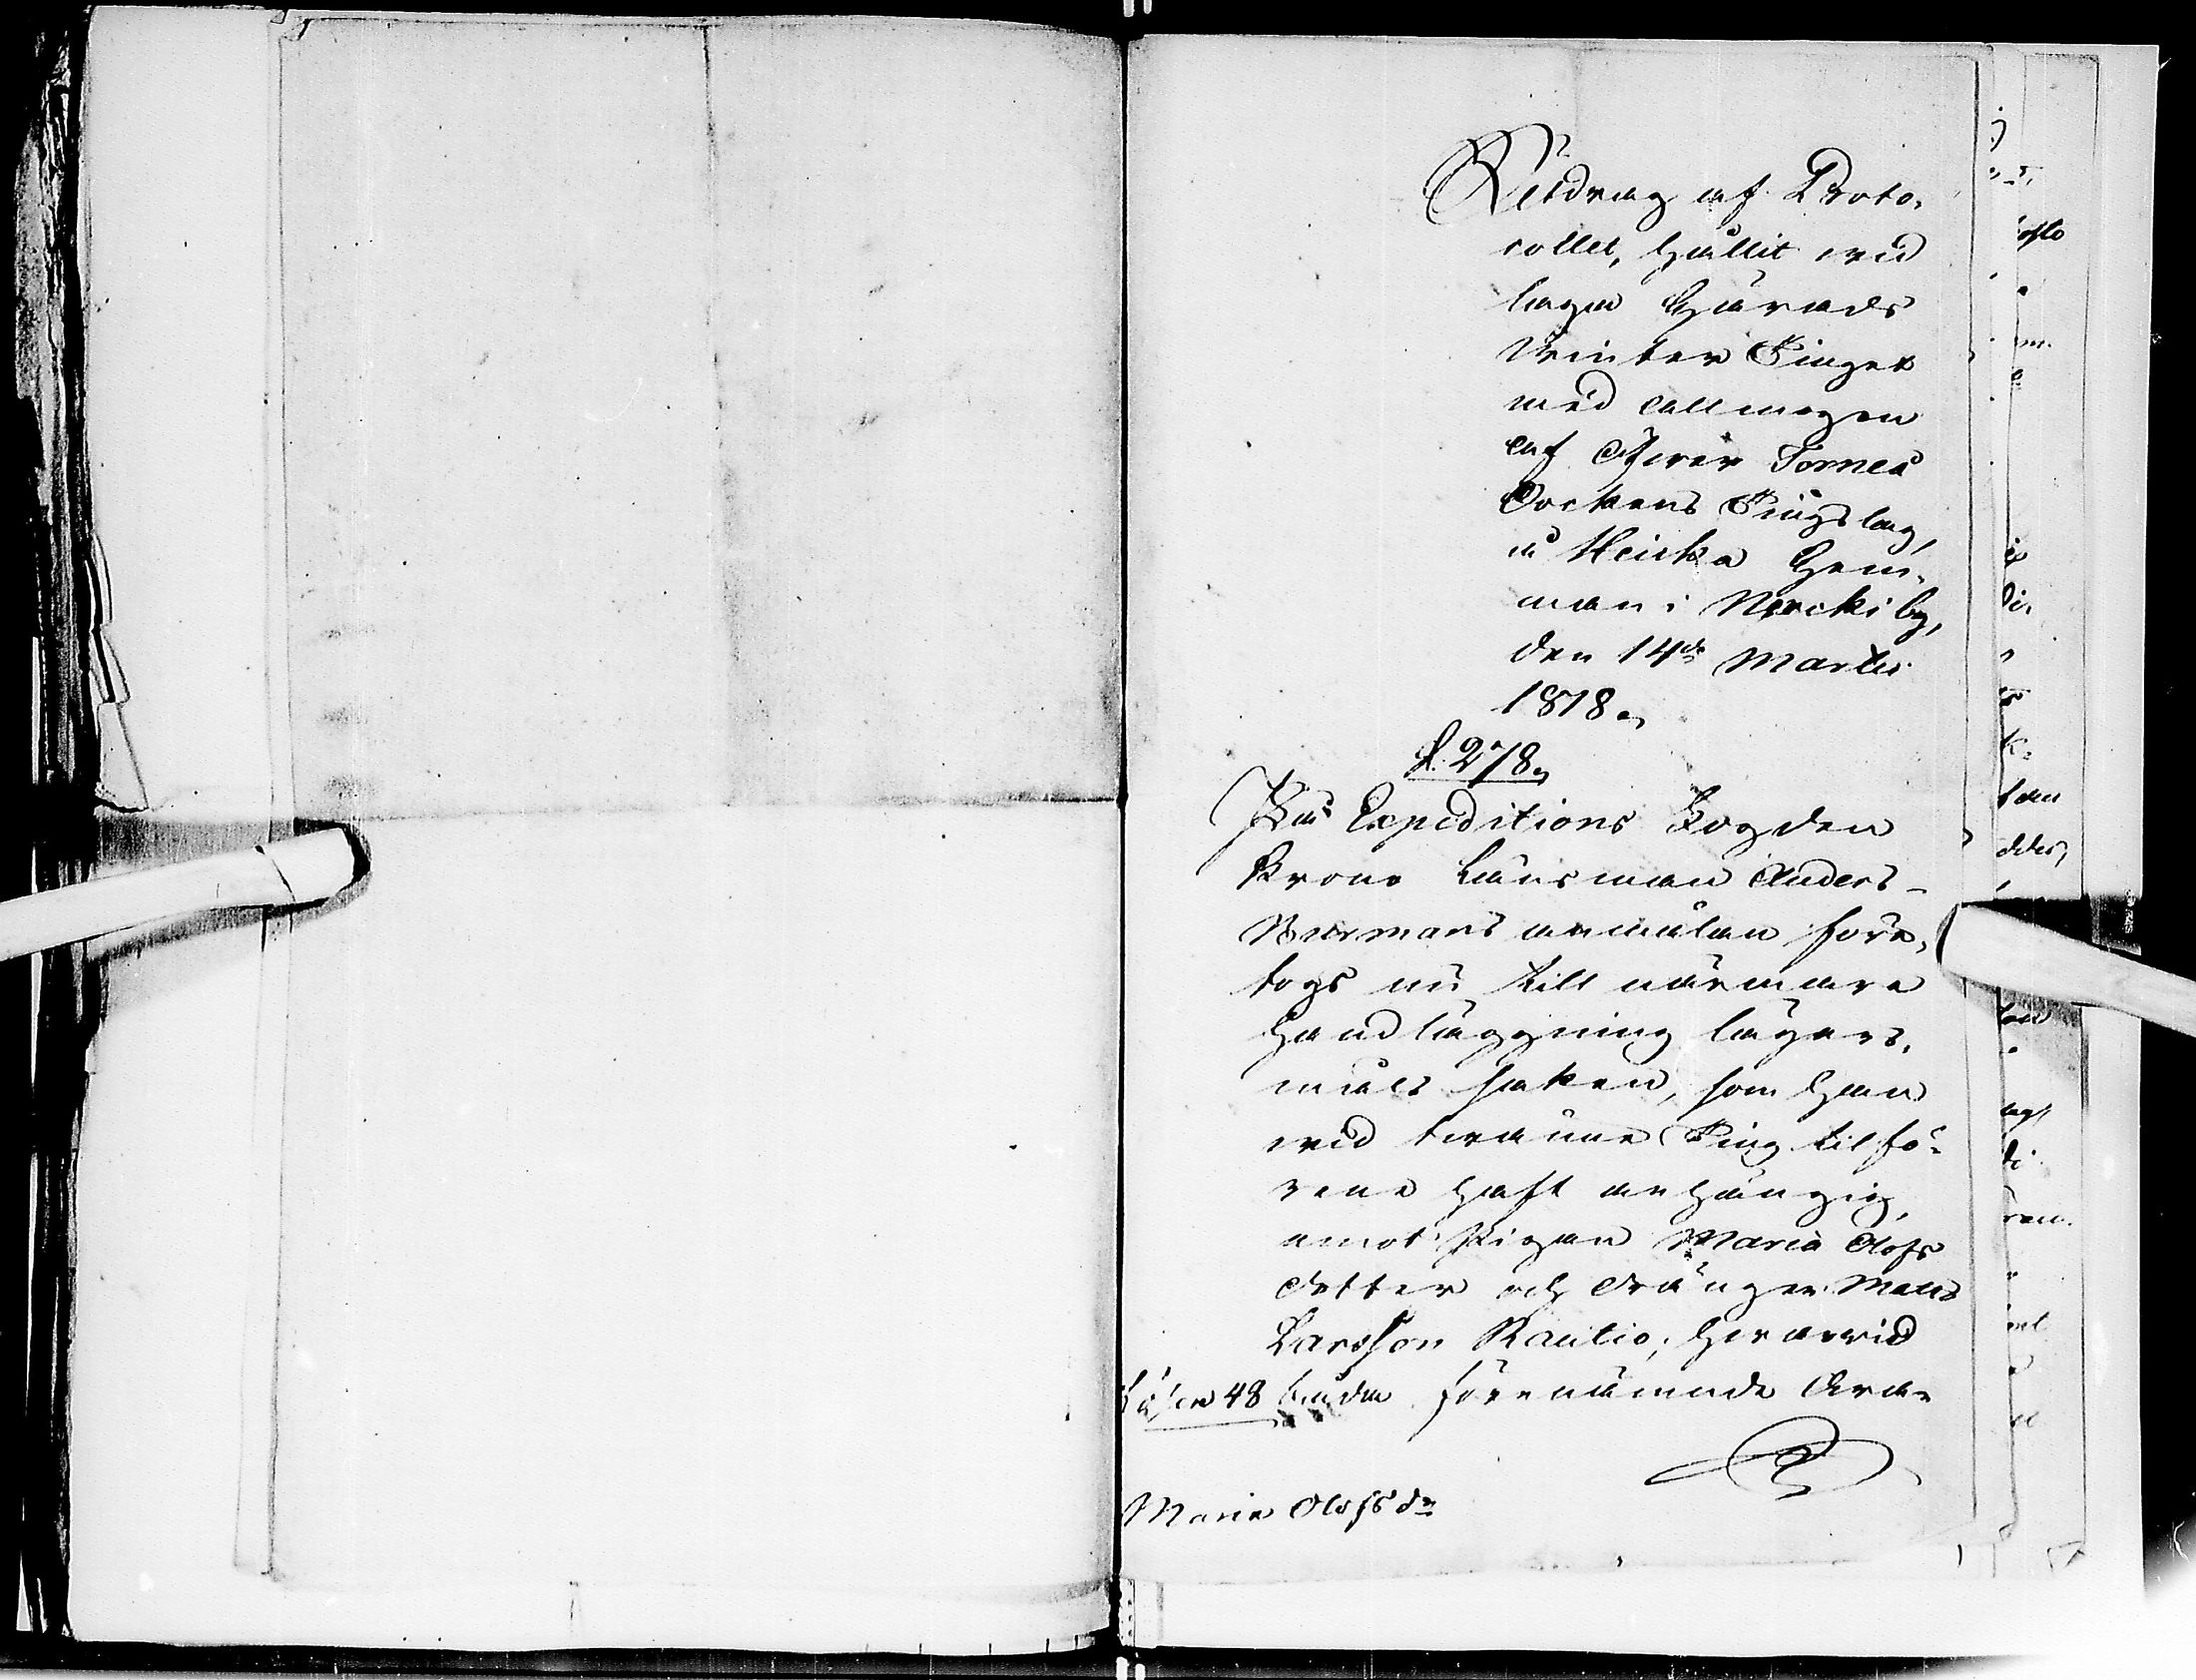 Utdrag af Proto-
collet, hållit wid
laga Härads
Winter Tinget
med allmogen
af Öfver Torneå
Sockens Tingslag,
å Heicka Hem-
man i Närki by,
den 14de Martii
1818.
§. 278.
På Expeditions Fogden
Krono Länsman Anders
Burmans anmälan före-
togs nu till närmare
handläggning lägers-
måls saken, som han
wid twänne Ting tilfö-
rene haft anhängig,
emot Pigan Maria Olofs
Dotter och Drängen Mats
Larsson Rautio; Herwid
både förenämnde Swa-
48
Maria Olofsdr